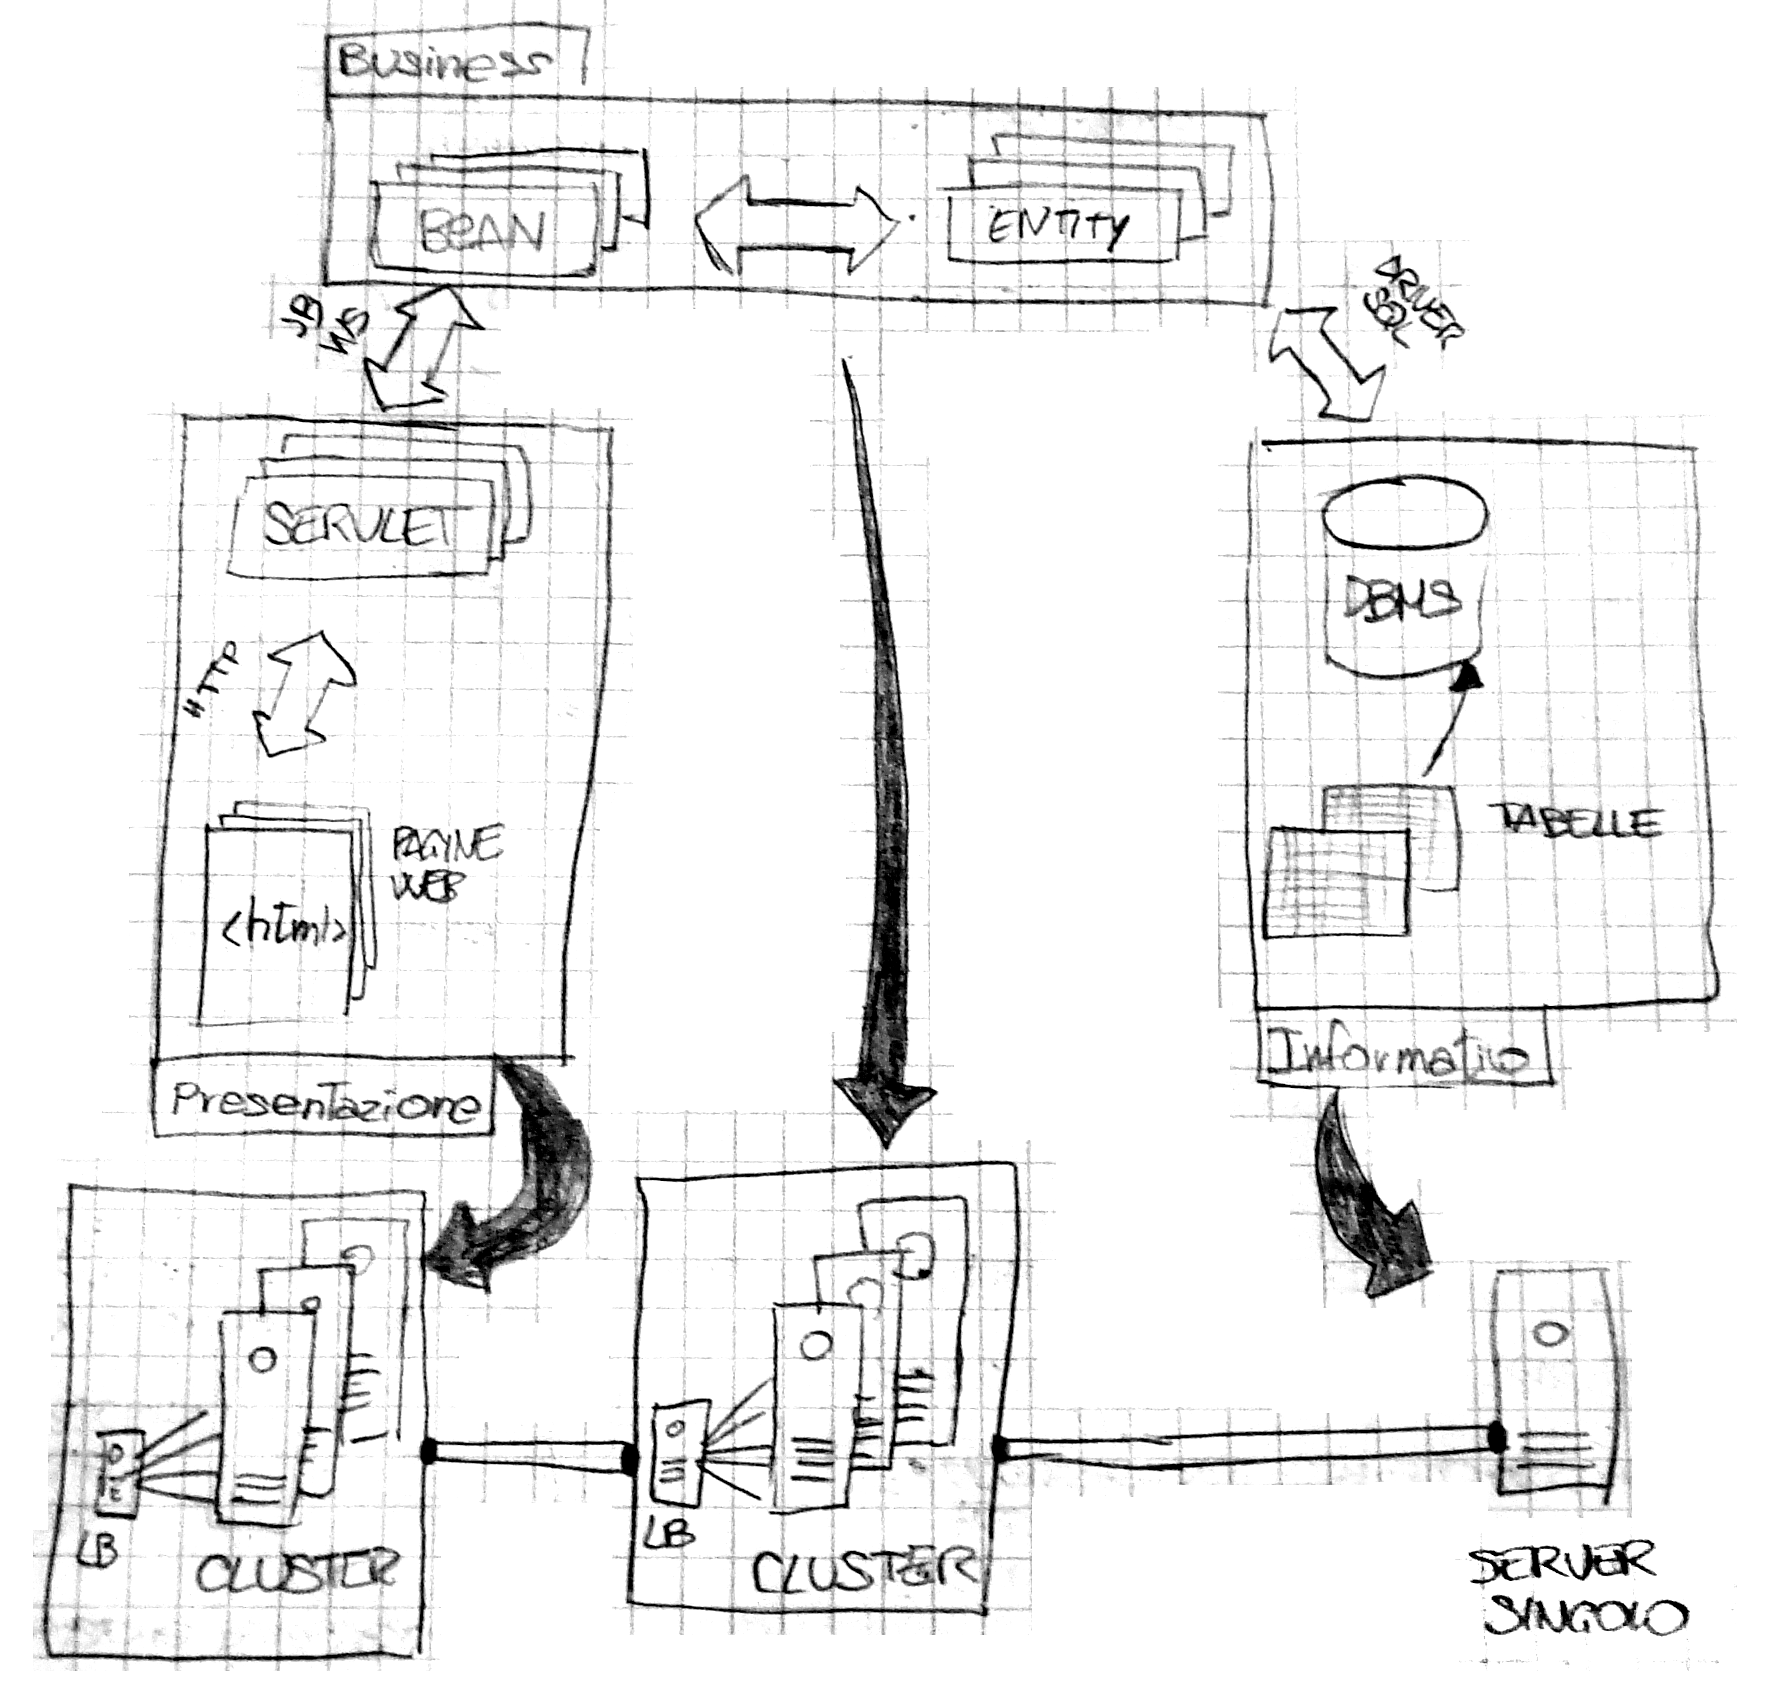 Business
BEAN
ENTITY
WS
DRIVER
SQL
SERVLET
HTTP
PAGINE
WEB
<html>
Presentazione
DBMS
TABELLE
Informativo
LB
CLUSTER
LB
CLUSTER
SERVER
SINGOLO